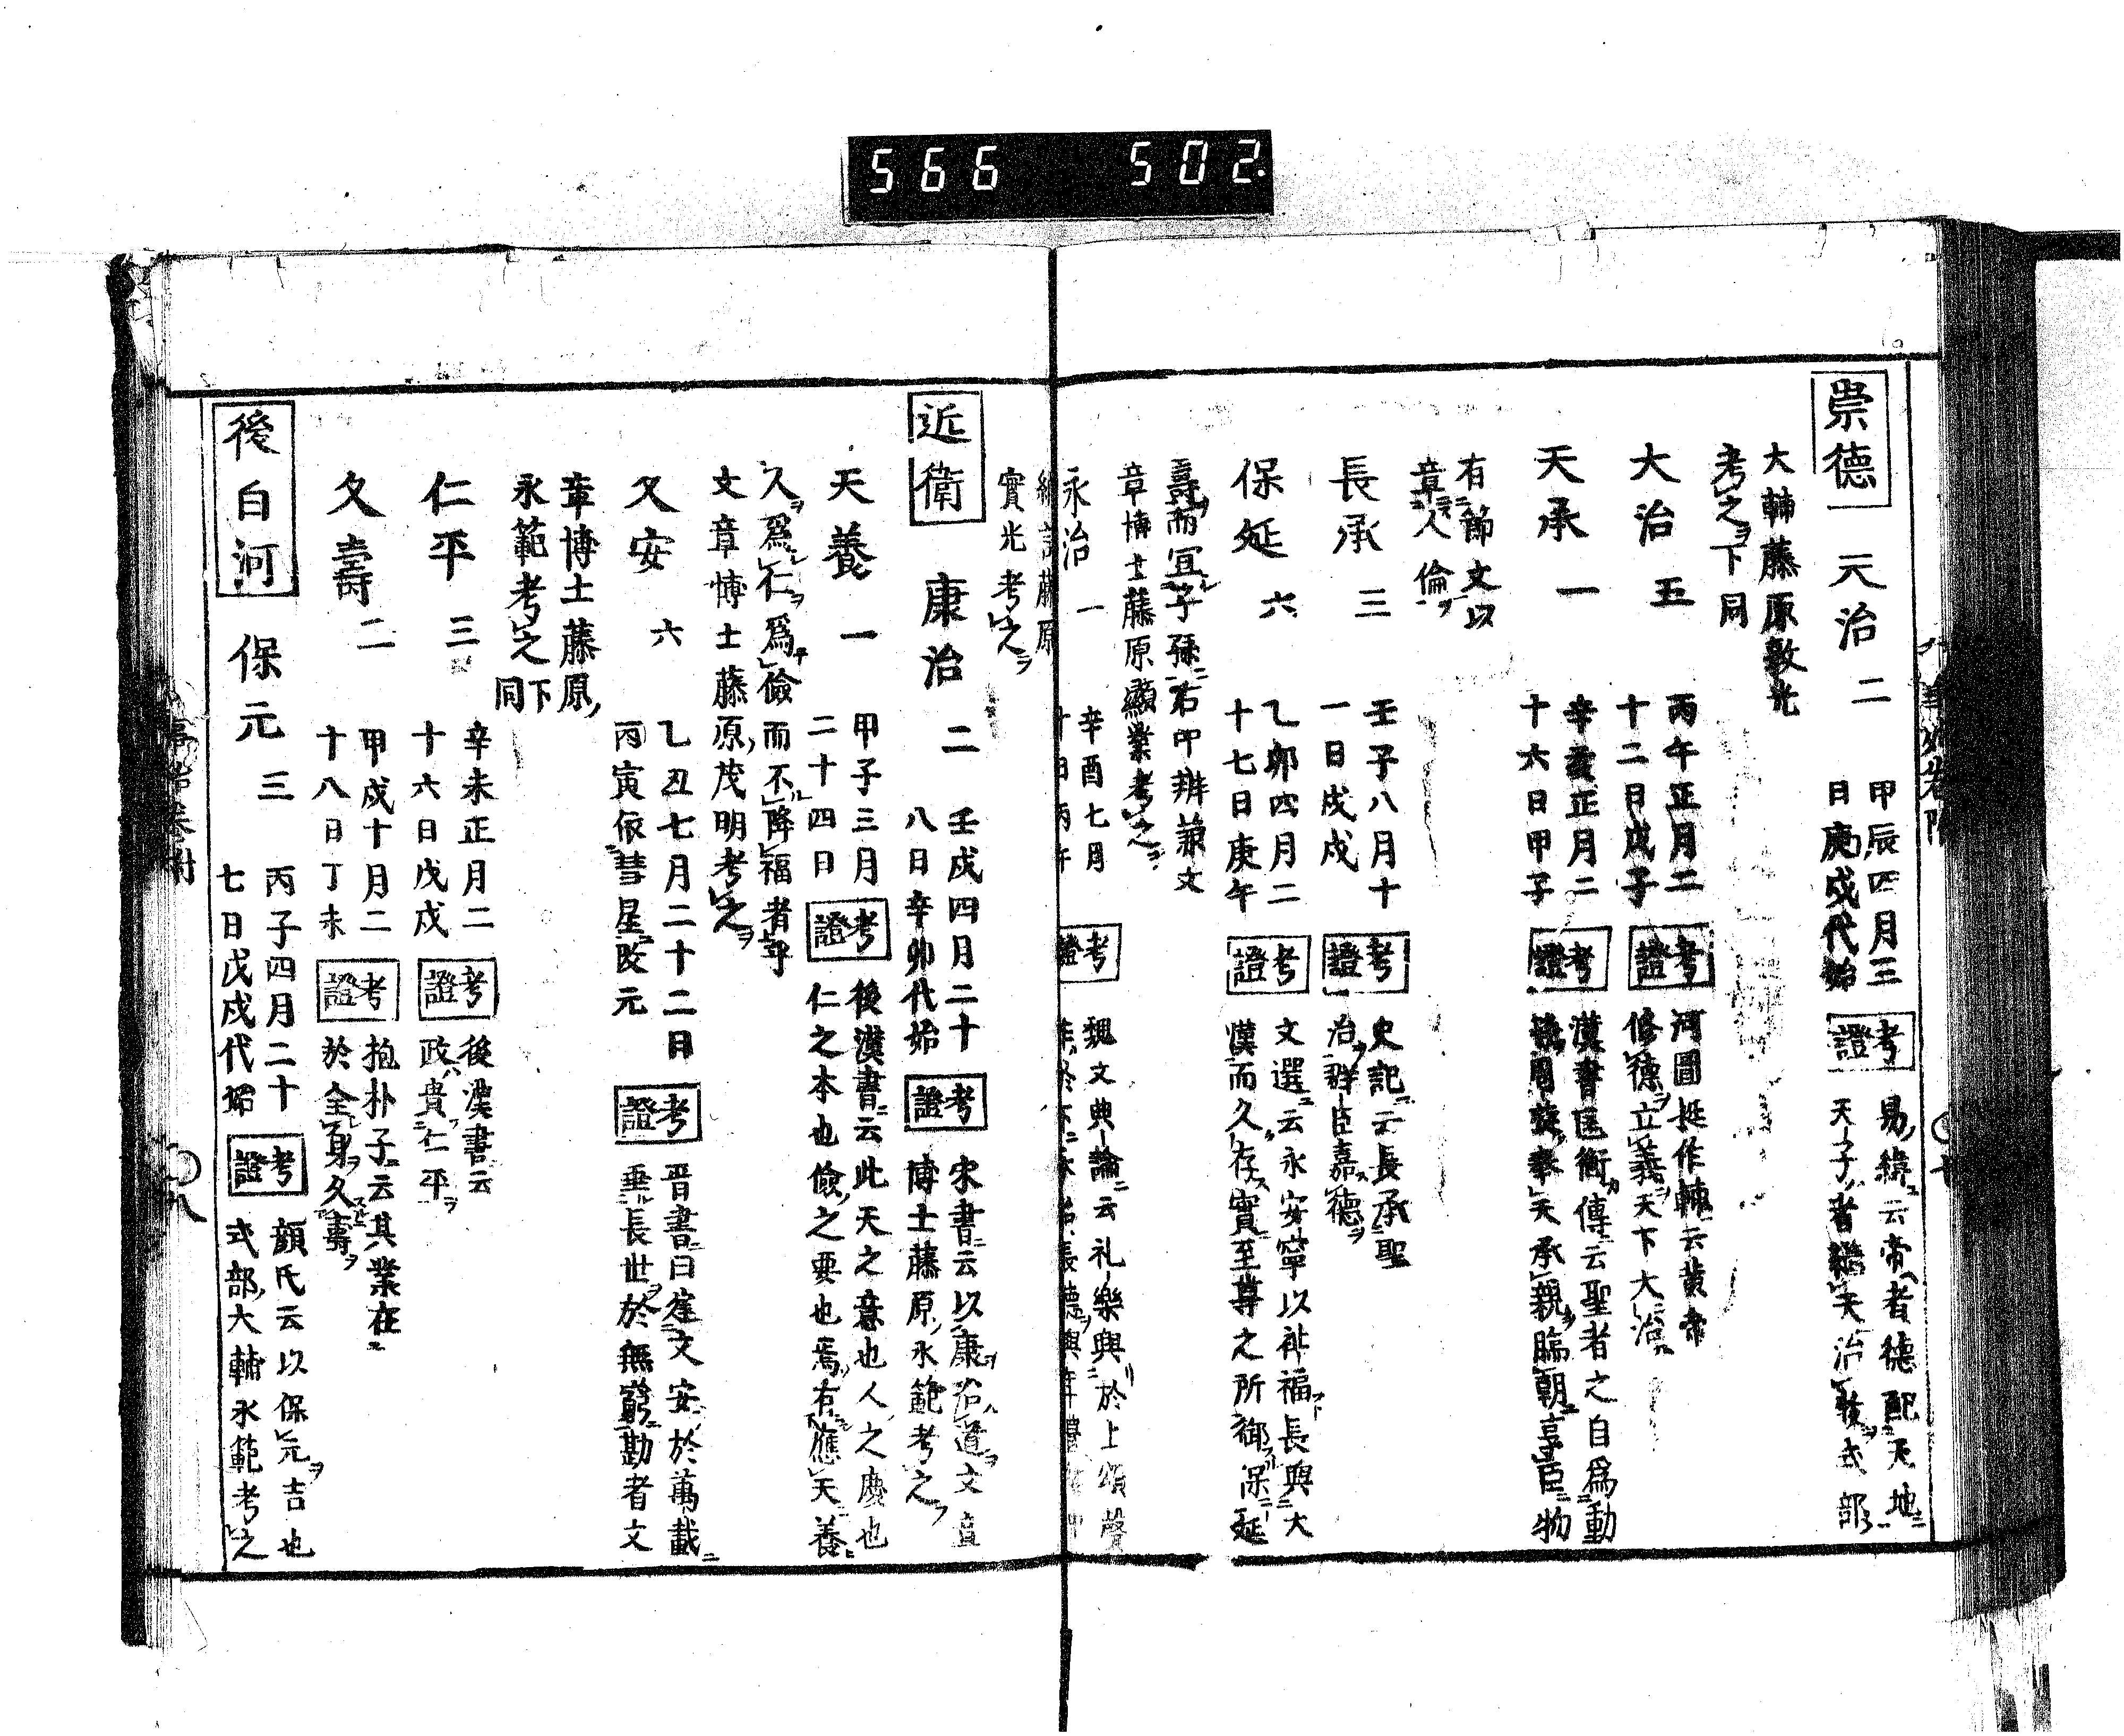 566 502.
崇德 天治 二
甲辰四月三
日庚戌代始
考證
易緯云帝者德配天地
天子者繼天治
式部
大輔藤原敦光
考之下同
大治 五
丙午正月二
十二日戊子
考證
河圖挺作輔云黄帝
修德立義天下大治
天承 一
辛亥正月二
十六日甲子
考證
漢書匡衡傳云聖者之自爲動
周旋奉天承親臨朝享臣物
有節文以
章人倫
長承 三
壬子八月十
一日戊戌
考證
史記云長承聖
治群臣嘉德
保延 六
乙卯四月二
十七日庚午
考證
文選云永安寧以祉福長與大
漢而久存實至尊之所御保延
壽而宜子孫右中辨兼文
章博士藤原顯業考之
永治 一
辛酉七月
十日丙午
考證
魏文典論云礼樂興於上頌聲
藤原
實光考之
近衛 康治 二
壬戌四月二十
八日辛卯代始
考證
宋書云以康治道文章
博士藤原永範考之
天養 一
甲子三月
二十四日
考證
後漢書云此天之意也人之慶也
仁之本也儉之要也焉有應天養
久爲仁爲儉而不降福者乎
文章博士藤原茂明考之
久安 六
乙丑七月二十二日
丙寅依彗星改元
考證
晋書曰崔文安於萬載
垂長世於無窮勘者文
章博士藤原
永範考之下同
仁平 三
辛未正月二
十六日戊戌
考證
後漢書云
政貴仁平
久壽 二
甲戌十月二
十八日丁未
考證
抱朴子云其業在
於全身久壽
後白河 保元 三
丙子四月二十
七日戊戌代始
考證
顔氏云以保元吉也
式部大輔永範考之
八